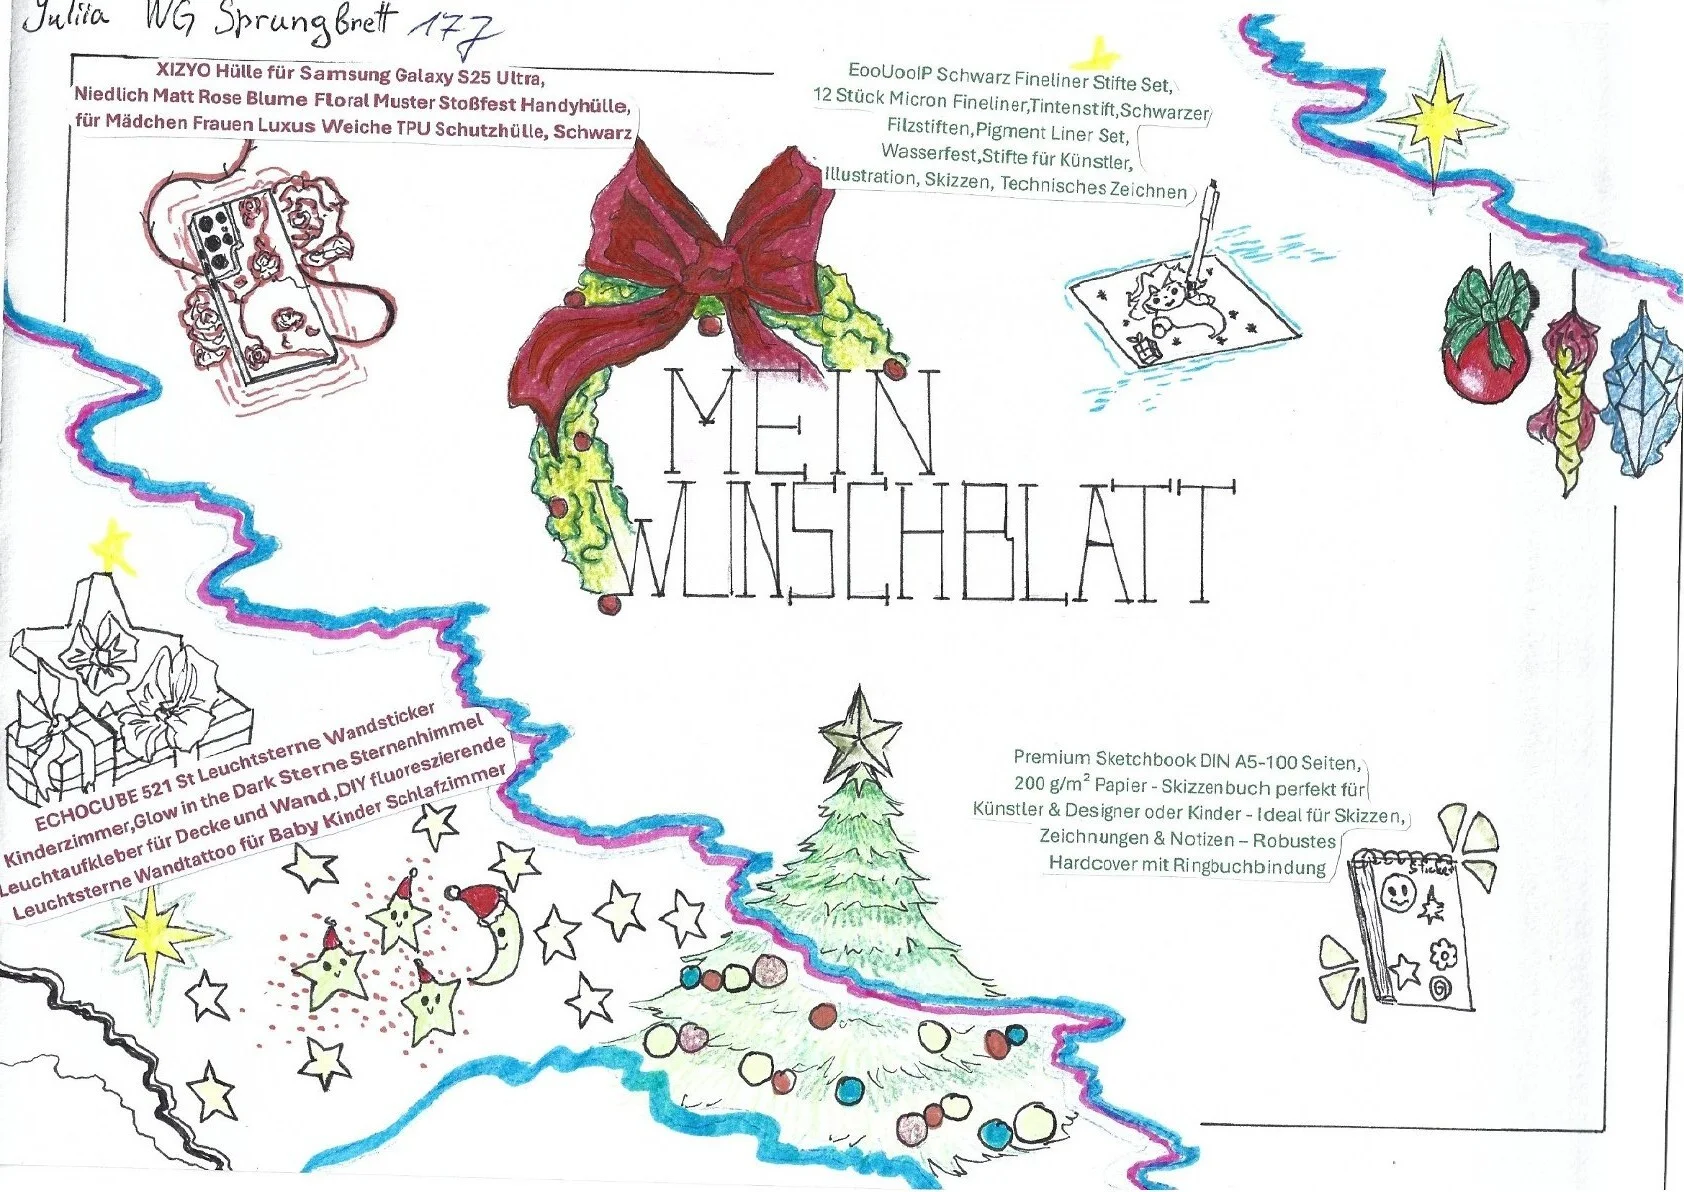 Yuliia WG Sprungbrett 177
XIZYO Hülle für Samsung Galaxy S25 Ultra,
Niedlich Matt Rose Blume Floral Muster Stoßfest Handyhülle,
für Mädchen Frauen Luxus Weiche TPU Schutzhülle, Schwarz
EooUooIP Schwarz Fineliner Stifte Set,
12 Stück Micron Fineliner,Tintenstift,Schwarzer
Filzstiften,Pigment Liner Set,
Wasserfest,Stifte für Künstler,
Illustration, Skizzen, Technisches Zeichnen
MEIN
WUNSCHBLATT
ECHOCUBE 521 St Leuchtsterne Wandsticker
Kinderzimmer,Glow in the Dark Sterne Sternenhimmel
Leuchtaufkleber für Decke und Wand,DIY fluoreszierende
Leuchtsterne Wandtattoo für Baby Kinder Schlafzimmer
Premium Sketchbook DIN A5-100 Seiten,
200 g/m² Papier - Skizzenbuch perfekt für
Künstler & Designer oder Kinder - Ideal für Skizzen,
Zeichnungen & Notizen – Robustes
Hardcover mit Ringbuchbindung
Sticker